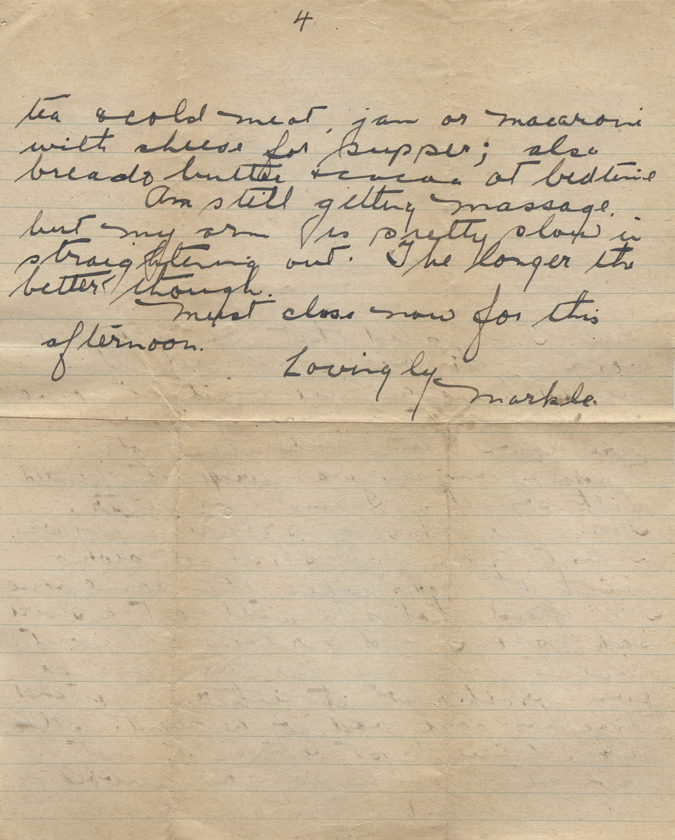 4
tea & cold meat, jam or macaroni
with cheese for supper; also
bread & butter & cocoa at bedtime
Am still getting massage,
but my arm is pretty slow in
straightening out. The longer the
better though.
Must close now for this
afternoon.
Lovingly
Markle.